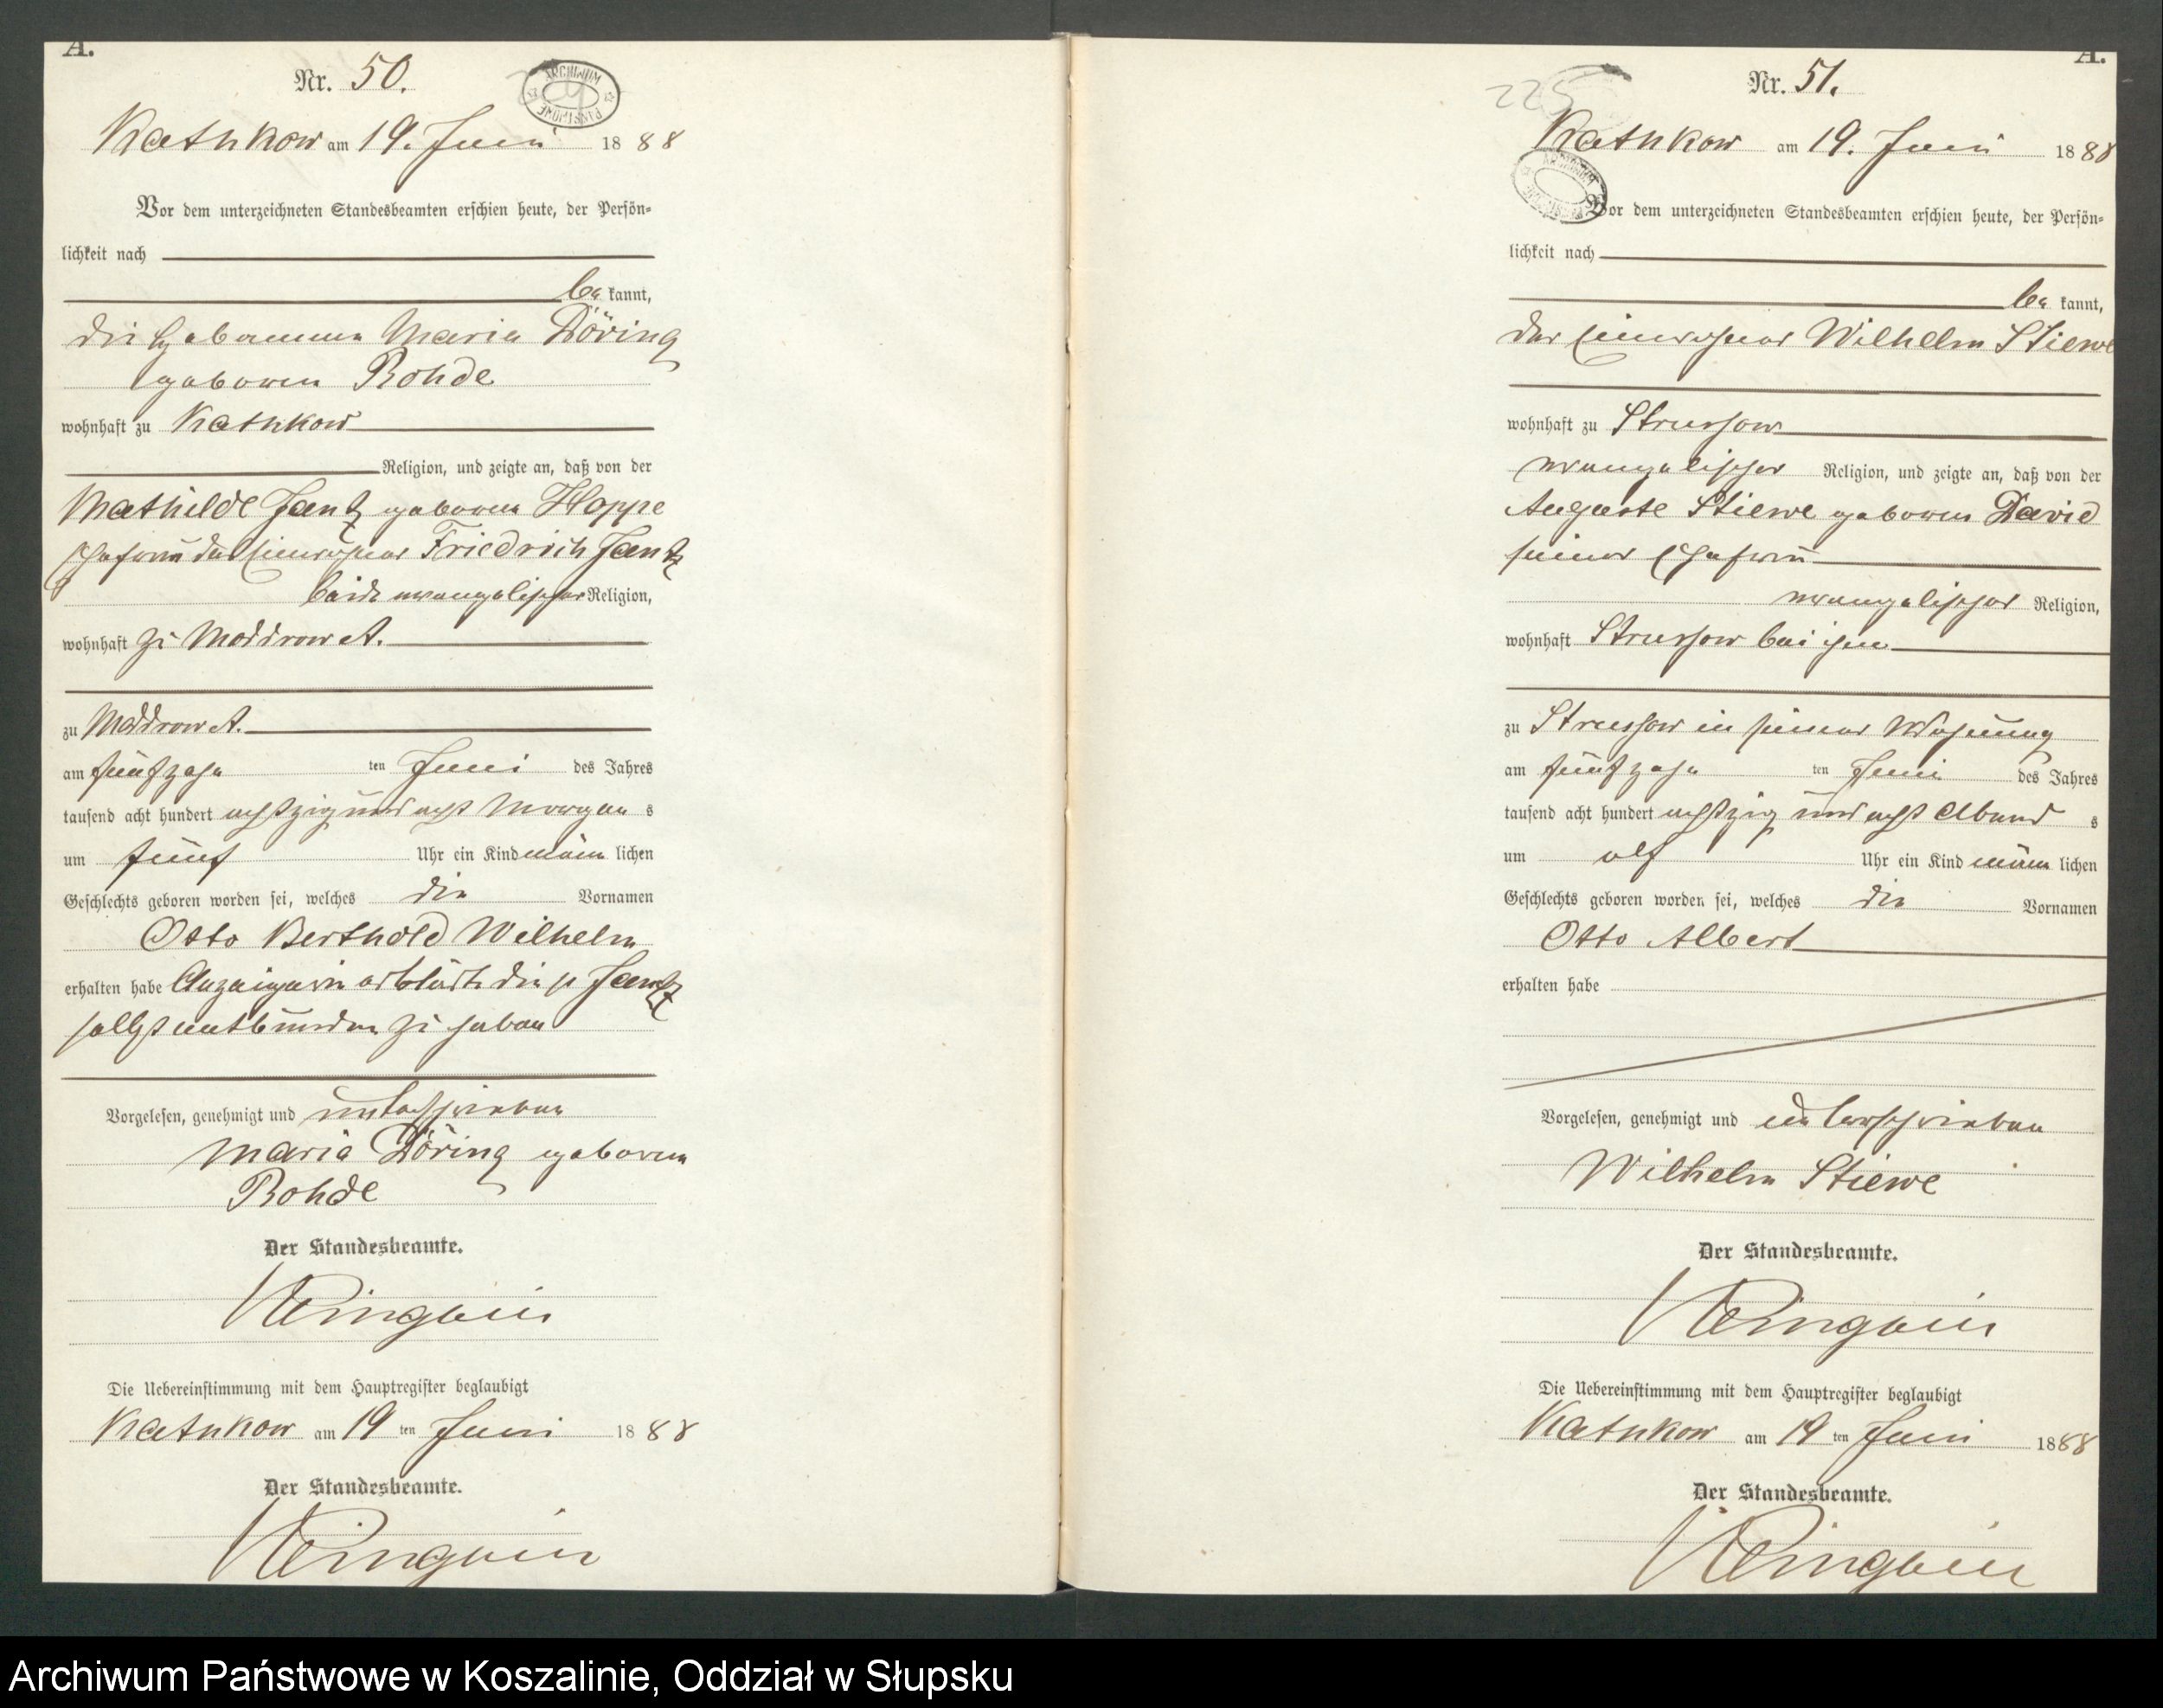 A.
Nr. 50.
ARCHIWUM PAŃSTWOWE
Kathkow am 19. Juni 1888
Vor dem unterzeichneten Standesbeamten erschien heute, der Persön-
lichkeit nach
be kannt,
die Hebamme Maria Döring
geborene Rohde
wohnhaft zu Kathkow
Religion, und zeigte an, daß von der
Mathilde Jantz geborene Hoppe
Ehefrau des Einwohner Friedrich Jantz
beide evangelischer Religion,
wohnhaft zu Moddrow A.
zu Moddrow A.
am fünfzehn ten Juni des Jahres
tausend acht hundert achtzig und acht Morgen s
um fünf Uhr ein Kind männ lichen
Geschlechts geboren worden sei, welches die Vornamen
Otto Berthold Wilhelm
erhalten habe Anzeigerin erklärte die p Jantz
selbst entbunden zu haben
Vorgelesen, genehmigt und unterschrieben
Maria Döring geborene
Rohde
Der Standesbeamte.
Die Uebereinstimmung mit dem Hauptregister beglaubigt
Kathkow am 19 ten Juni 1888
Der Standesbeamte.
A.
225
Nr. 51.
Kathkow am 19. Juni 1888
Vor dem unterzeichneten Standesbeamten erschien heute, der Persön-
lichkeit nach
be kannt,
der Einwohner Wilhelm Stiewe
wohnhaft zu Strussow
evangelischer Religion, und zeigte an, daß von der
Auguste Stiewe geborene David
seiner Ehefrau
evangelischer Religion,
wohnhaft Strussow bei ihm
zu Strussow in seiner Wohnung
am fünfzehn ten Juni des Jahres
tausend acht hundert achtzig und acht Abend s
um elf Uhr ein Kind männ lichen
Geschlechts geboren worden sei, welches die Vornamen
Otto Albert
erhalten habe
Vorgelesen, genehmigt und unterschrieben
Wilhelm Stiewe
Der Standesbeamte.
Die Uebereinstimmung mit dem Hauptregister beglaubigt
Kathkow am 19 ten Juni 1888
Der Standesbeamte.
Archiwum Państwowe w Koszalinie, Oddział w Słupsku